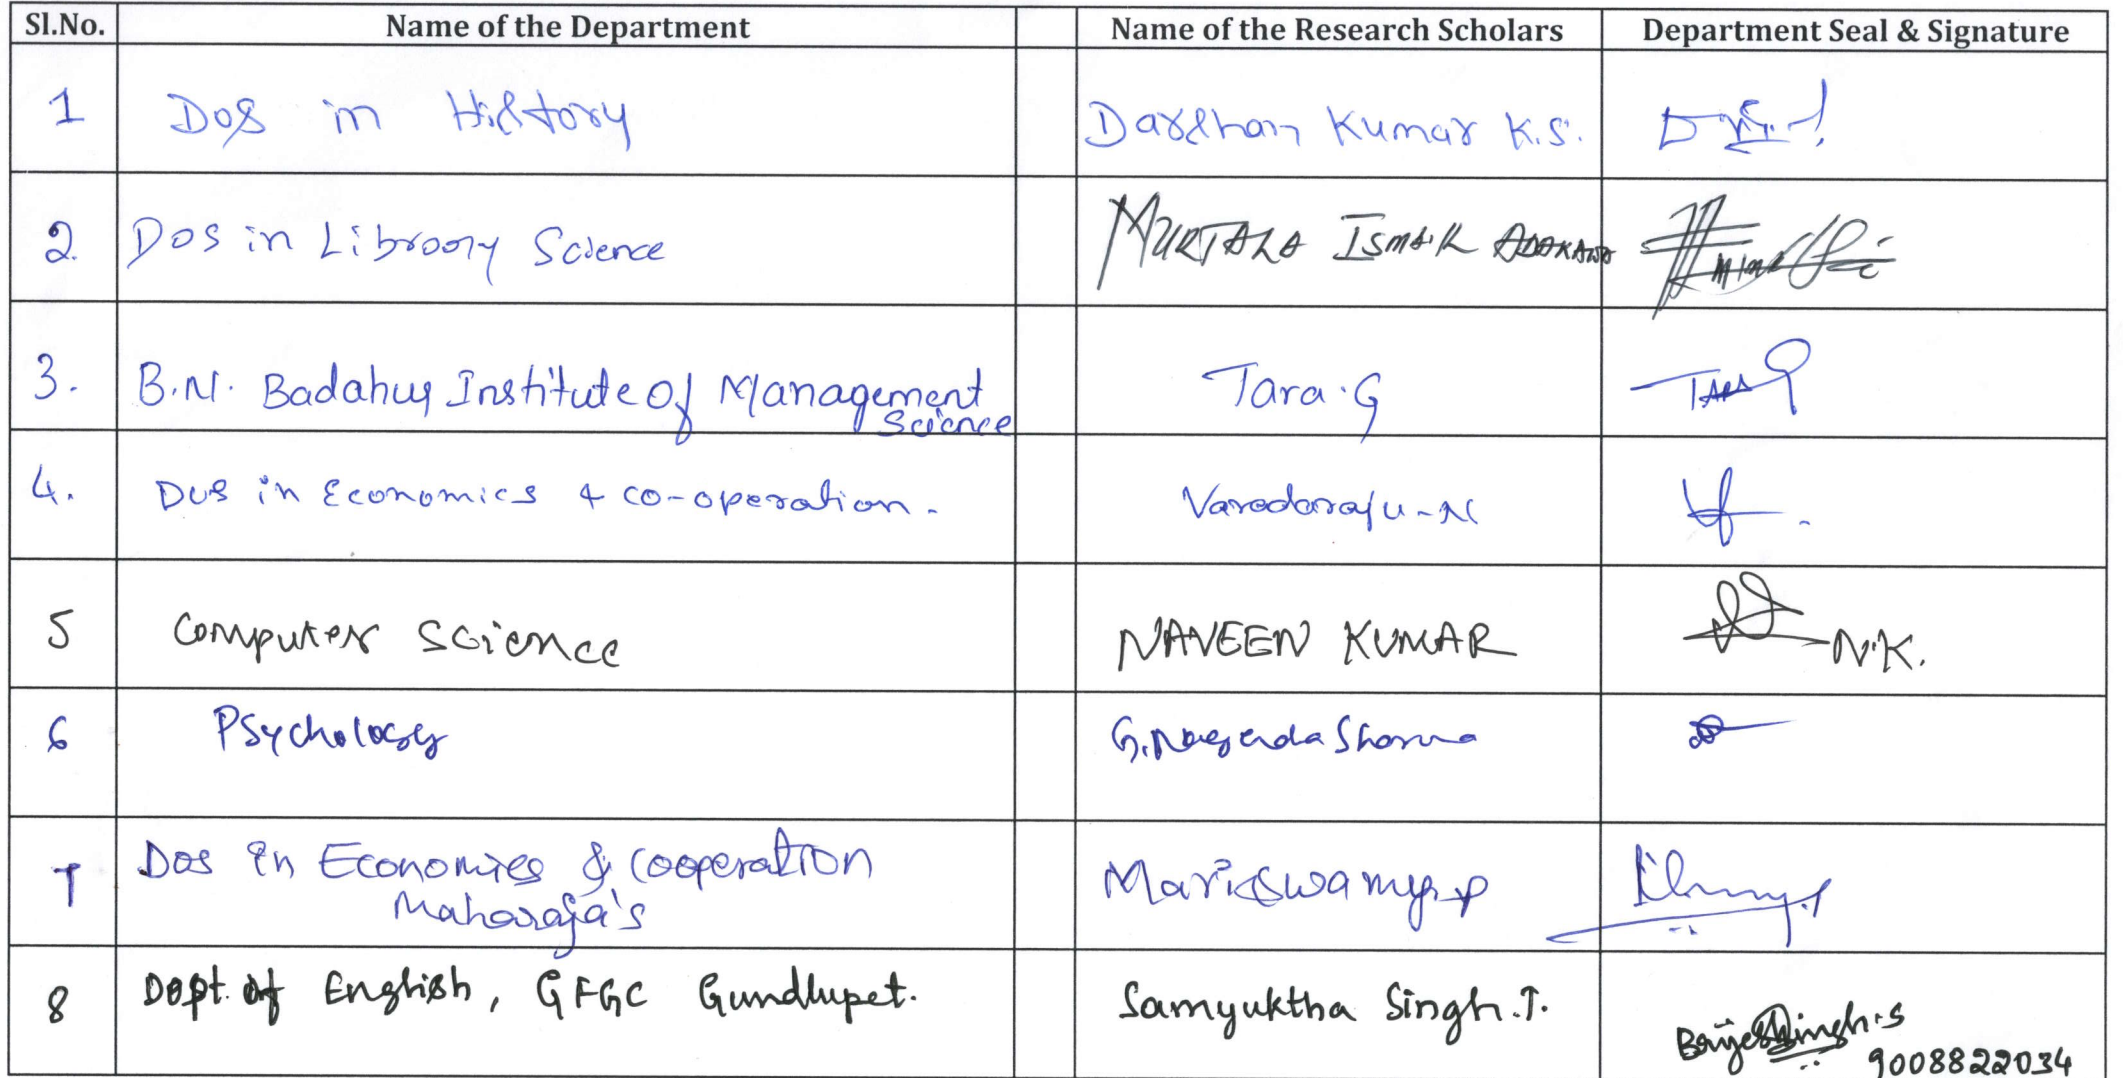 Sl.No. Name of the Department Name of the Research Scholars Department Seal & Signature
1 Dos in History Darshan Kumar K.S.
2. Dos in Library Science MURTALA ISMAIL ADAKAWA
3. B.N. Badahur Institute of Management Science Tara.G TARA
4. Dos in Economics & co-operation. Varadaraju-N
5 Computer Science NAVEEN KUMAR N.K.
6 Psychology G. Nagenda Sharma
7 Dos in Economics & Cooperation
Maharaja's Mariswamy.p
8 Dept. of English, GFGC Gundlupet. Samyuktha Singh.J. Brijesh Singh.S
9008822034